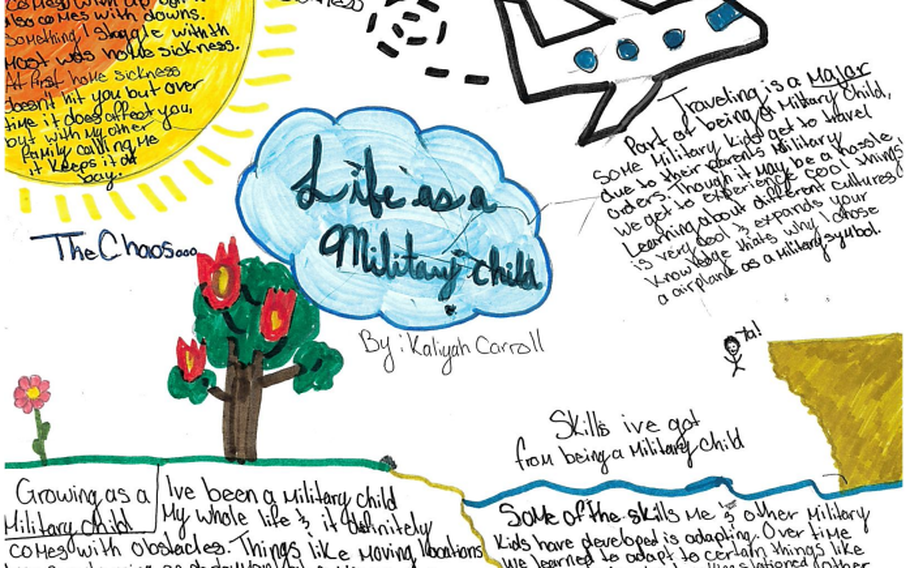 comes with up but it
also comes with downs.
Something I struggle with th
most was home sickness.
At first home sickness
doesn't hit you but over
time it does affect you,
but with my other
family calling me
it keeps it at
bay.
Traveling is a major
Part of being a Military Child,
Some Military kids get to travel
due to their parents Military
orders. Though it may be a hassle,
we get to experience cool things
Learning about different cultures
is very cool & expands your
knowledge thats why I chose
a airplane as a Military symbol.
Life as a
Military child
By: Kaliyah Carroll
The Chaos...
Ya!
Skills ive got
from being a Military Child
Growing as a
Military child
Ive been a Military child
My whole life & it definitely
comes with obstacles. Things like moving locations
Some of the skills me & other Military
kids have developed is adapting. Over time
we learned to adapt to certain things like
other